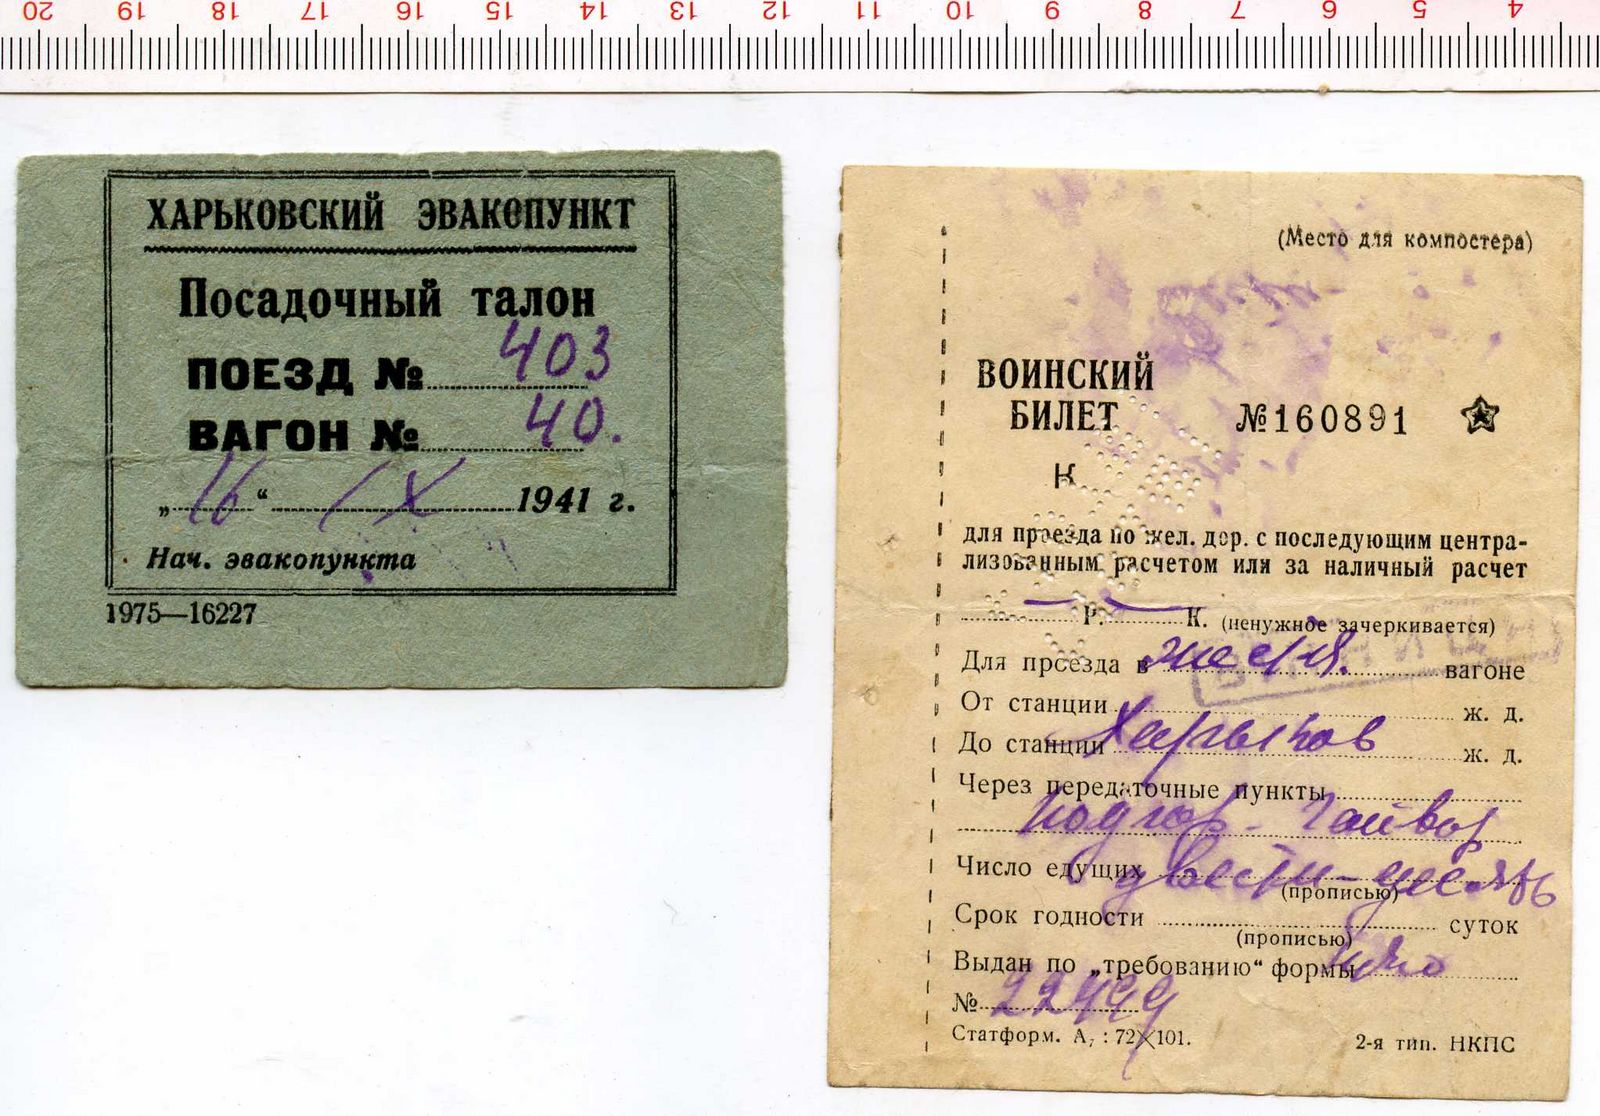 20 19 18 17 16 15 14 13 12 11 10 9 8 7 6 5 4
ХАРЬКОВСКИЙ ЭВАКОПУНКТ
Посадочный талон
ПОЕЗД № 403
ВАГОН № 40.
„16“ IX 1941 г.
Нач. эвакопункта
1975—16227
(Место для компостера)
ВОИНСКИЙ
БИЛЕТ №160891
К
для проезда по жел. дор. с последующим центра-
лизованным расчетом или за наличный расчет
Р. К. (ненужное зачеркивается)
Для проезда в вагоне
От станции ж. д.
До станции Харьков ж. д.
Через передаточные пункты
Число едущих двести-десять
(прописью)
Срок годности суток
(прописью)
Выдан по „требованию“ формы
№ 22499
Статформ. А₇ : 72×101. 2-я тип. НКПС